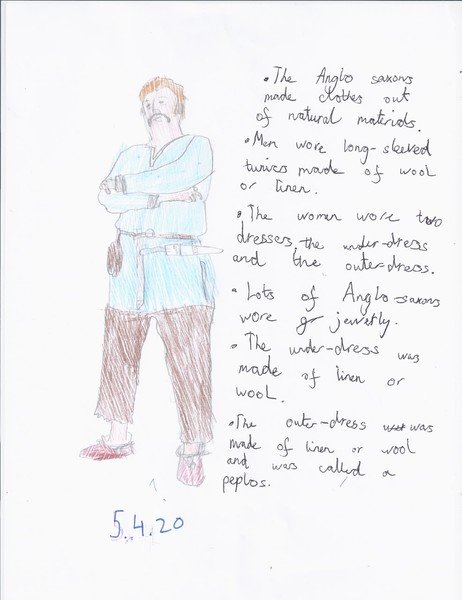 • The Anglo saxons
made clothes out
of natural materials.
• Men wore long-sleeved
tunics made of wool
or linen.
• The women wore two
dresses, the under-dress
and the outer-dress.
• Lots of Anglo-saxons
wore jewerlly.
• The under-dress was
made of linen or
wool.
• The outer-dress was
made of linen or wool
and was called a
peplos.
5.4.20